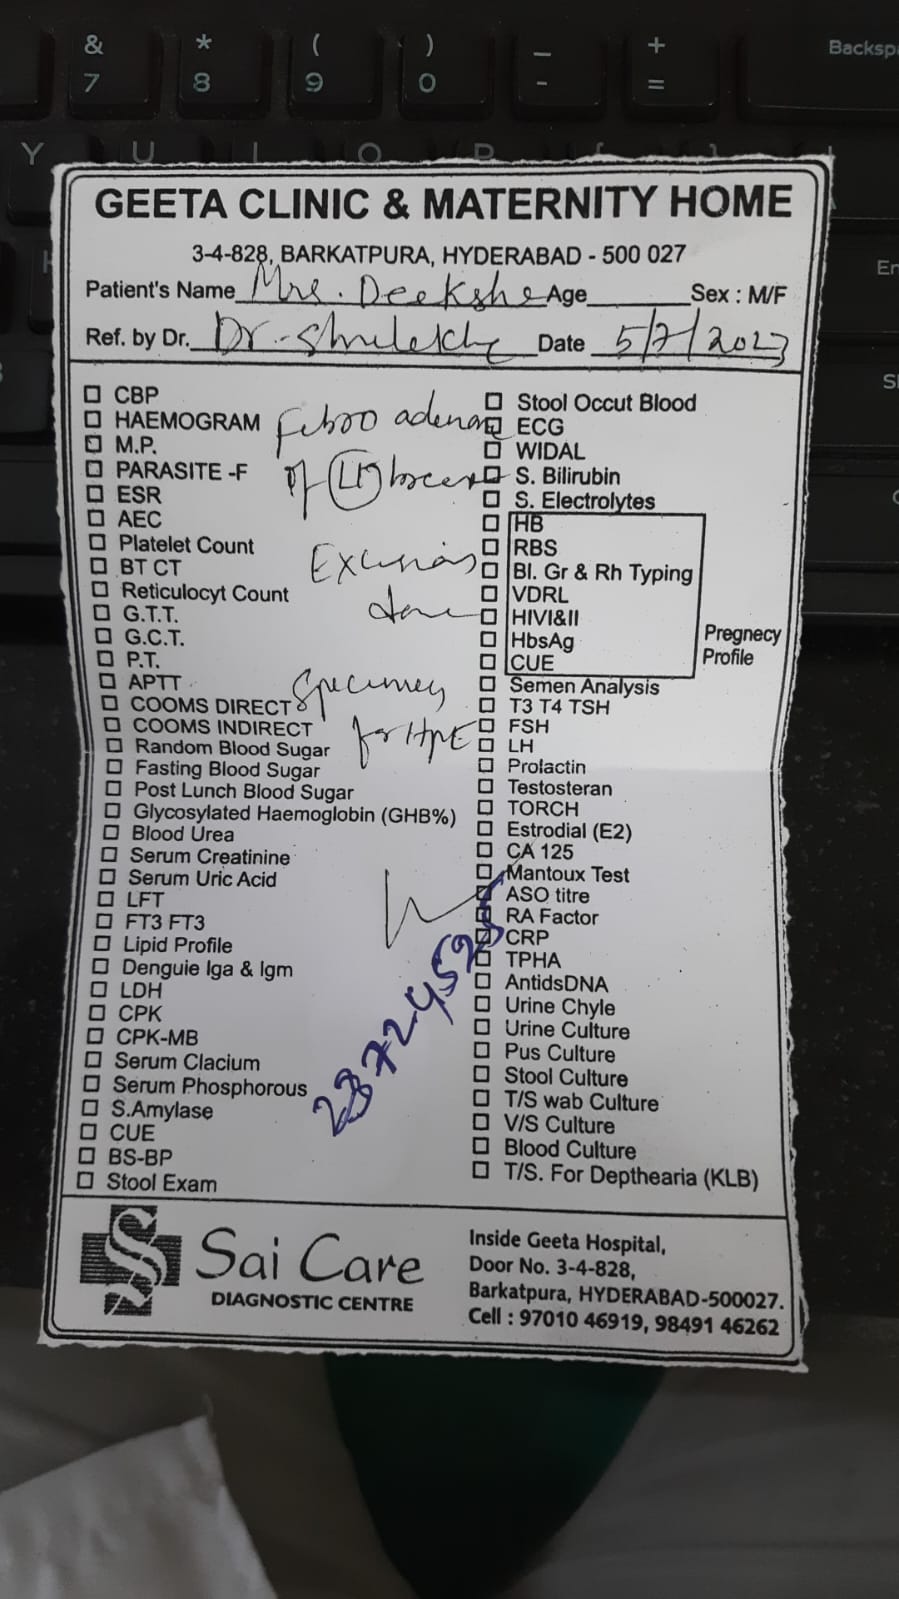 & * ( ) _ + Backsp
7 8 9 0 - =
Y U I O P
GEETA CLINIC & MATERNITY HOME
3-4-828, BARKATPURA, HYDERABAD - 500 027
Patient's Name Mrs. Deeksha Age Sex : M/F
Ref. by Dr. Dr. Shrilekha Date 5/7/2023
CBP
HAEMOGRAM
M.P.
PARASITE -F
ESR
AEC
Platelet Count
BT CT
Reticulocyt Count
G.T.T.
G.C.T.
P.T.
APTT
COOMS DIRECT
COOMS INDIRECT
Random Blood Sugar
Fasting Blood Sugar
Post Lunch Blood Sugar
Glycosylated Haemoglobin (GHB%)
Blood Urea
Serum Creatinine
Serum Uric Acid
LFT
FT3 FT3
Lipid Profile
Denguie Iga & Igm
LDH
CPK
CPK-MB
Serum Clacium
Serum Phosphorous
S.Amylase
CUE
BS-BP
Stool Exam
Fibro adenoma
of Lt breast
Excision
done
Specimen
for HPE
Stool Occut Blood
ECG
WIDAL
S. Bilirubin
S. Electrolytes
HB
RBS
Bl. Gr & Rh Typing
VDRL
HIVI&II
HbsAg
CUE
Pregnecy
Profile
Semen Analysis
T3 T4 TSH
FSH
LH
Prolactin
Testosteran
TORCH
Estrodial (E2)
CA 125
Mantoux Test
ASO titre
RA Factor
CRP
TPHA
AntidsDNA
Urine Chyle
Urine Culture
Pus Culture
Stool Culture
T/S wab Culture
V/S Culture
Blood Culture
T/S. For Depthearia (KLB)
Sai Care
DIAGNOSTIC CENTRE
Inside Geeta Hospital,
Door No. 3-4-828,
Barkatpura, HYDERABAD-500027.
Cell : 97010 46919, 98491 46262